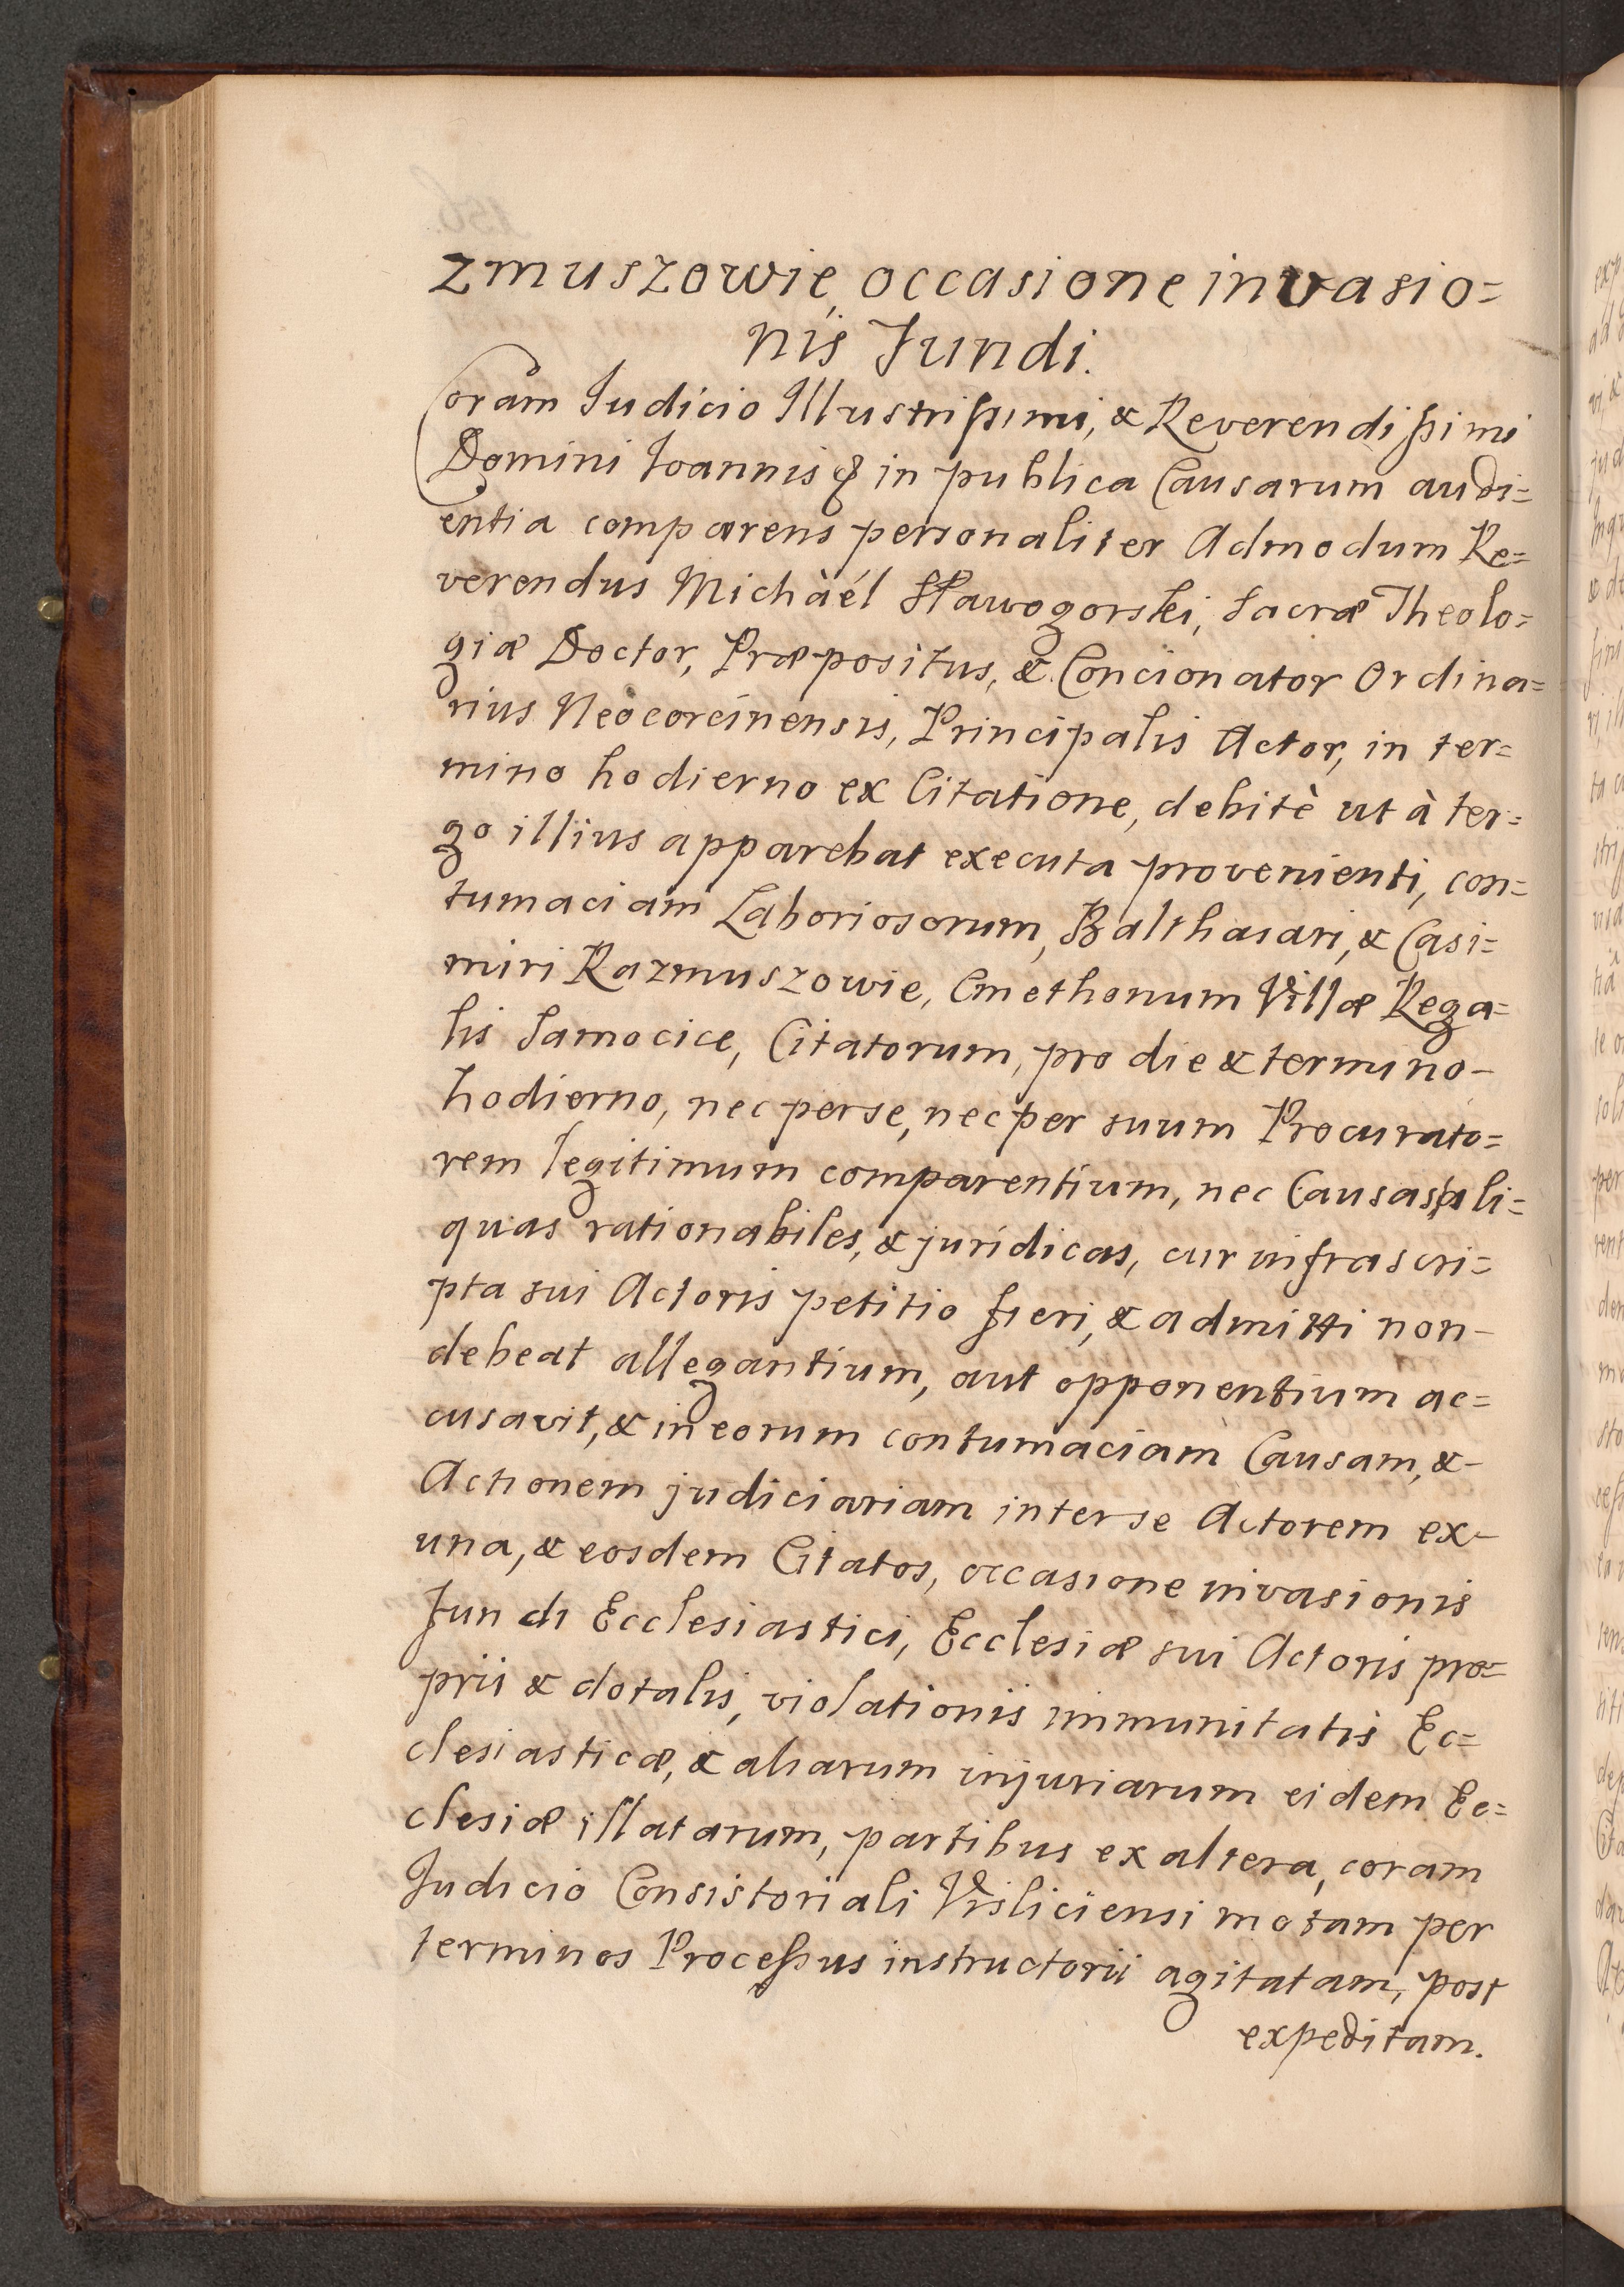 zmuszowie, occasione invasio=
nis Fundi.
Coram Iudicio Illustrissimi, & Reverendissimi
Domini Ioannis & in publica Causarum audi=
entia comparens personaliter Admodum Re=
verendus Michàél Sławogorski, Sacræ Theolo=
giæ Doctor, Præpositus, & Concionator Ordina=
rius Neocorcinensis, Principalis Actor, in ter=
mino hodierno ex Citatione, debitè ut à ter=
go illius apparebat executa provenienti, con=
tumaciam Laboriosorum, Balthasari, & Casi=
miri Razmuszowie, Cmethonum Villæ Rega=
lis Samocice, Citatorum, pro die & termino-
hodierno, nec per se, nec per suum Procurato=
rem legitimum comparentium, nec Causas ali=
quas rationabiles, & juridicas, cur infrascri=
pta sui Actoris petitio fieri, & admitti non-
debeat allegantium, aut opponentium ac=
cusavit, & in eorum contumaciam Causam, &-
Actionem judiciariam inter se Actorem ex-
una, & eosdem Citatos, occasione invasionis
Fundi Ecclesiastici, Ecclesiæ sui Actoris pro=
prii & dotalis, violationis immunitatis Ec=
clesiasticæ, & aliarum injuriarum eidem Ec=
clesiæ illatarum, partibus ex altera, coram
Iudicio Consistoriali Visliciensi motam per
terminos Processus instructorii agitatam, post
expeditam.